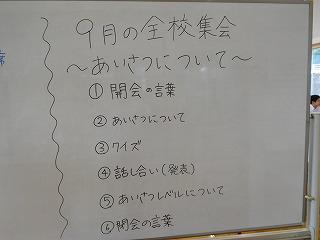 9月の全校集会
〜あいさつについて〜
①開会の言葉
②あいさつについて
③クイズ
④話し合い(発表)
⑤あいさつレベルについて
⑥閉会の言葉